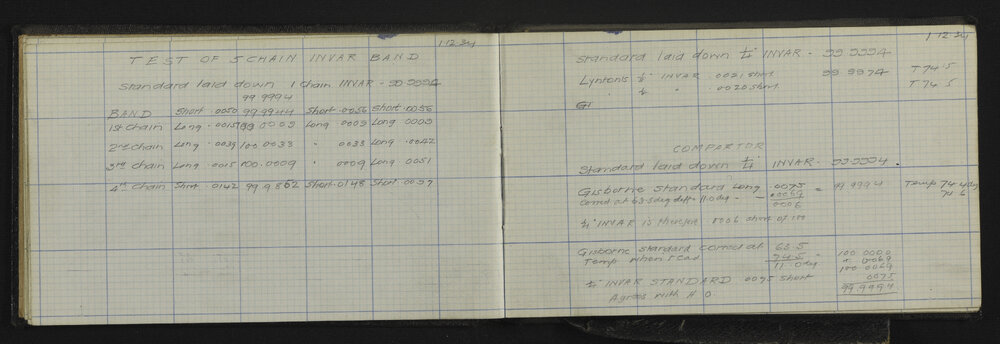 1·12·34
TEST OF 5 CHAIN INVAR BAND
Standard laid down 1 chain INVAR - 99.9994
99.9994
BAND Short .0050 99.9944 Short .0056 Short .0056
1st chain Long .0015 99 0009 Long .0009 Long .0009
2nd chain Long .0039 100.0033 " .0033 Long .0042
3rd chain Long .0015 100.0009 " .0009 Long .0051
4th chain Short .0142 99.9862 Short .0148 Short .0097
1·12·34
Standard laid down ¼" INVAR - 99.9994
Lynton's ¼" INVAR .0021 short 99.9974 T 74.5
" ¼ " .0020 short T 74.5
GI
COMPARTOR
Standard laid down ¼" INVAR - 99.9994.
Gisborne Standard Long .0075 = 99.9994 Temp 74.4 deg
Correct at 63.5 deg diff. 11.0 deg - .0069 74.6
.0006
¼" INVAR is therefore .0006 short of 100
Gisborne standard correct at 63.5 100.0000
Temp when read 74.5 = + .0069
11.0 deg 100.0069
¼" INVAR STANDARD .0075 short .0075
Agrees with H.O. 99.9994